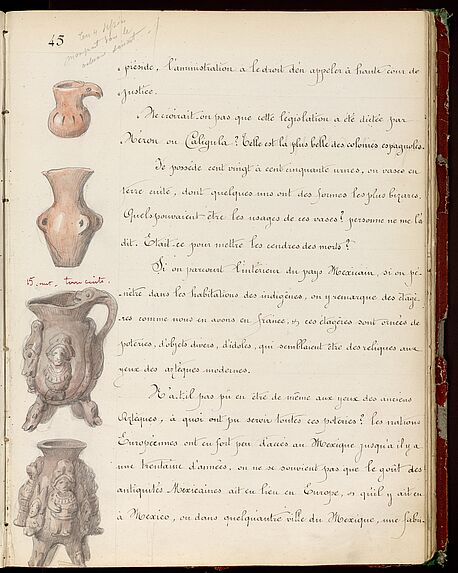 45
préside, l'administration a le droit d'en appeler à haute cour de
justice.
Ne croirait-on pas que cette législation a été dictée par
Néron ou Caligula? Telle est la plus belle des colonies espagnoles.
Je possède cent vingt à cent cinquante urnes, ou vases en
terre cuite, dont quelques uns ont des formes les plus bizares.
Quels pouvaient être les usages de ces vases? personne ne me l'a
dit. Etait-ce pour mettre les cendres des morts?
15. terre cuite.
Si on parcourt l'intérieur du pays Mexicain, si on pé-
nètre dans les habitations des indigènes, on y remarque des étagè-
res comme nous en avons en france, & ces étagères sont ornées de
poteries, d'objets divers, d'idoles, qui semblaient être des reliques aux
yeux des aztèques modernes.
N'a-t-il pas pû en étre de même aux yeux des anciens
Aztèques, à quoi ont pu servir toutes ces poteries? les nations
Européennes ont eu fort peu d'accès au Mexique jusqu'à il y a
une trentaine d'années, on ne se souvient pas que le goût des
antiquités Mexicaines ait eu lieu en Europe, & qu'il y ait en
à Mexico, ou dans quelqu'autre ville du Mexique, une fabri-